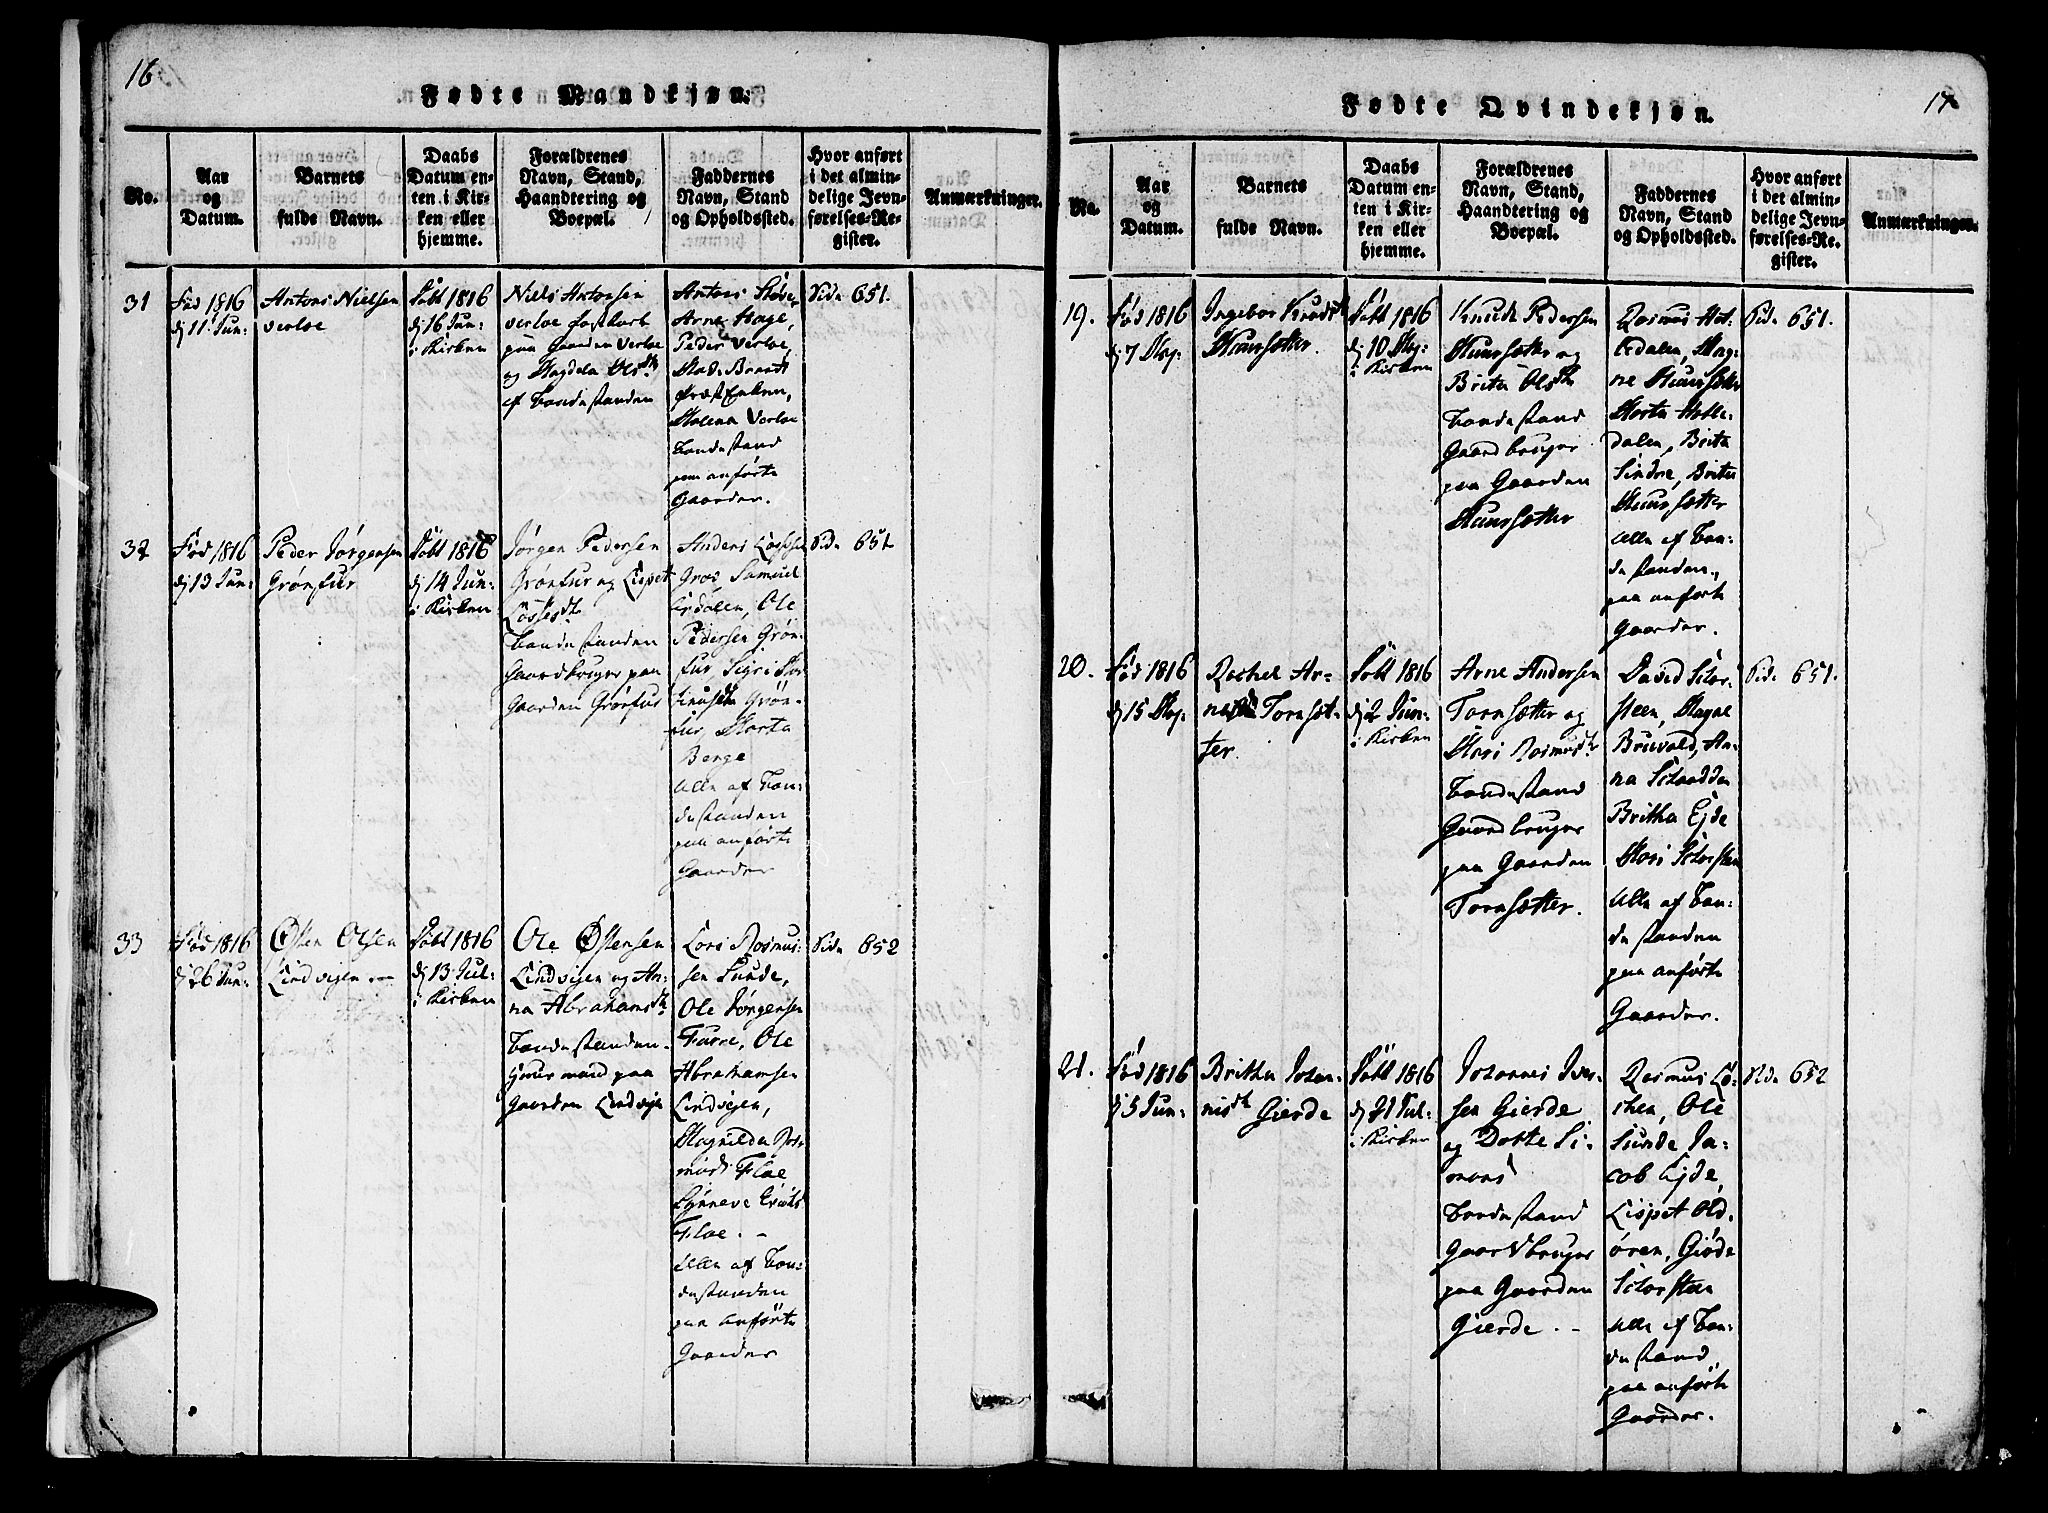 16
Fødte Mandkjøn.
No.
Aar
og
Datum.
Barnets
fulde Navn.
Daabs
Datum en-
ten i Kir-
ken eller
hjemme.
Forældrenes
Navn, Stand,
Haandtering og
Boepæl.
Faddernes
Navn, Stand
og Opholdssted.
Hvor anført
i det almin-
delige Jevn-
førelses-Re-
gister.
Anmærkninger.
31
Fød 1816
dj 11 Jun:
Antoni Nielsen
Verloe
Døbt 1816
dj 16 Jun:
i Kirken
Niels Antonsen
Verloe
paa Gaarden Verloe
og Magdela Olsdtr
af Bondestanden
Arne Hage,
Peder Verloe,
Malena Verloe
Bondestand
paa anførte
Gaarder.
Side 651.
32
Fød 1816
dj 13 Jun:
Peder Jørgensen
Grønfur
Døbt 1816
dj 14 Jun:
i Kirken
Jørgen Pedersen
Grønfur og Lispet
Lassesdt
Bondestanden
Gaardbruger paa
Gaarden Grønfur
Anders Lassesen
Groe, Samuel
Erdalen, Ole
Pedersen Grøn-
fur, Sigri
Grøn-
fur, Marta
Berge
Alle af Bon-
destanden
paa anførte
Gaarder
Side 651
33
Fød 1816
dj 26 Jun:
Østen Olsen
Lindvigen
Døbt 1816
dj 13 Jul:
i Kirken
Ole Østensen
Lindvigen og An-
na Abrahamsdt
Bondestanden.
Huusmand paa
Gaarden Lindvigen
Lars Rasmus-
sen Sunde,
Ole Jørgensen
Furre, Ole
Abrahamsen
Lindvigen,
Magnilda Ras-
musdt Floe
Synneve
Floe.
Alle af Bon-
destanden
paa anførte
Gaarder
Side 652
17
Fødte Qvindekjøn.
No.
Aar
og
Datum.
Barnets
fulde Navn.
Daabs
Datum en-
ten i Kir-
ken eller
hjemme.
Forældrenes
Navn, Stand,
Haandtering og
Boepæl.
Faddernes
Navn, Stand
og Opholdssted.
Hvor anført
i det almin-
delige Jevn-
førelses-Re-
gister.
Anmærkninger.
19.
Fød 1816
dj 7 Maj:
Ingebor Knudsdt
Muursætter.
Døbt 1816
dj 10 Maj:
i Kirken
Knud Pedersen
Muursætter og
Brita Olsdtr
Bondestand
Gaardbruger
paa Gaarden
Muursætter
Rasmus Hol-
ledalen, Mag-
ne Muursætter
Marta Holle-
dalen, Brita
Sindre, Brita
Muursætter
Alle af Bon-
destanden,
paa anførte
Gaarder.
Side 651.
20.
Fød 1816
dj 15 Maj:
Rachel Ar-
nesdt Tornsæt-
ter.
Døbt 1816
dj 2 Jun:
i Kirken
Arne Andersen
Tornsætter og
Mari Rasmusdt
Bondestand
Gaardbruger
paa Gaarden
Tornsætter.
David Skor-
steen, Magne
Bruvold, An-
na Skaadden
Britha Ejde
Mari Skorsteen
Alle af Bon-
destanden
paa anførte
Gaarder.
Side 651.
21.
Fød 1816
dj 5 Jun:
Britha Johan-
nisdt Gierde
Døbt 1816
dj 21 Jul:
i Kirken
Johannes Iver-
sen Gierde
og Dorte Si-
mons
Bondestand
Gaardbruger
paa Gaarden
Gierde.
Rasmus Lø-
chen, Ole
Sunde, Ja-
cob Ejde,
Lispet Old-
ören, Giøde
Skorsteen
Alle af Bon-
destand
paa anførte
Gaarder.
Side 652